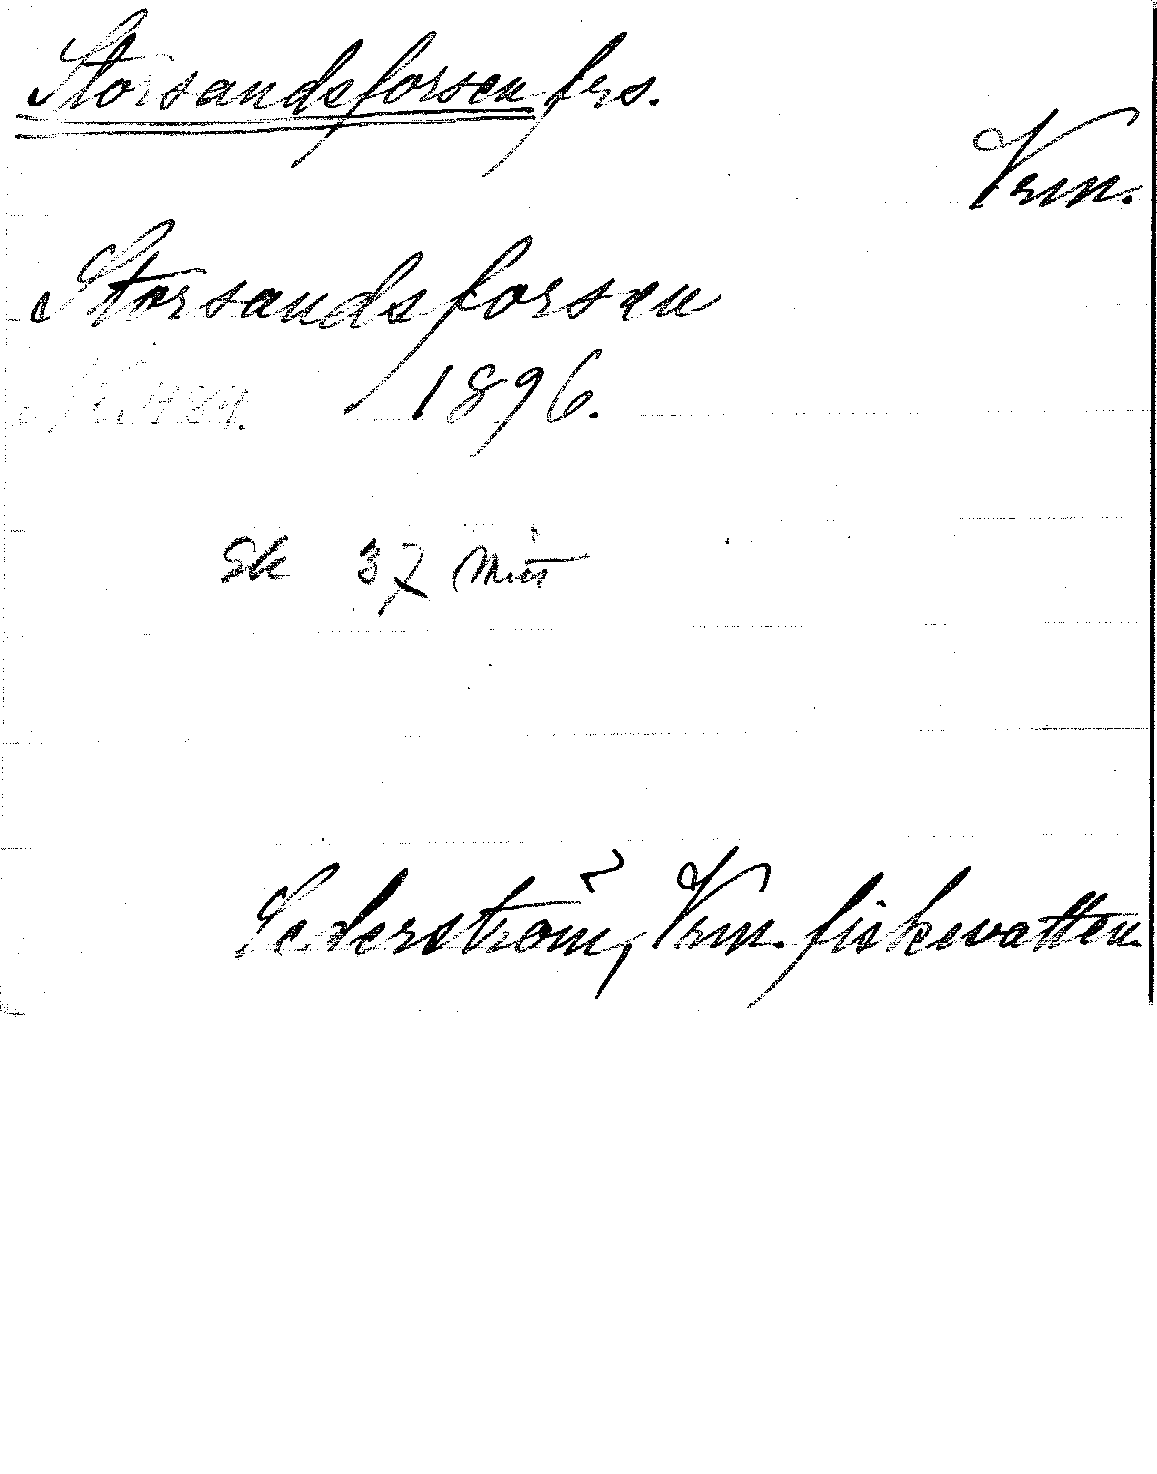 Storsandsforsen frs.
Vrm.
Storsandsforsen
1896.
Sk 37 Mitt
Cederström, Vrm. fiskevatten